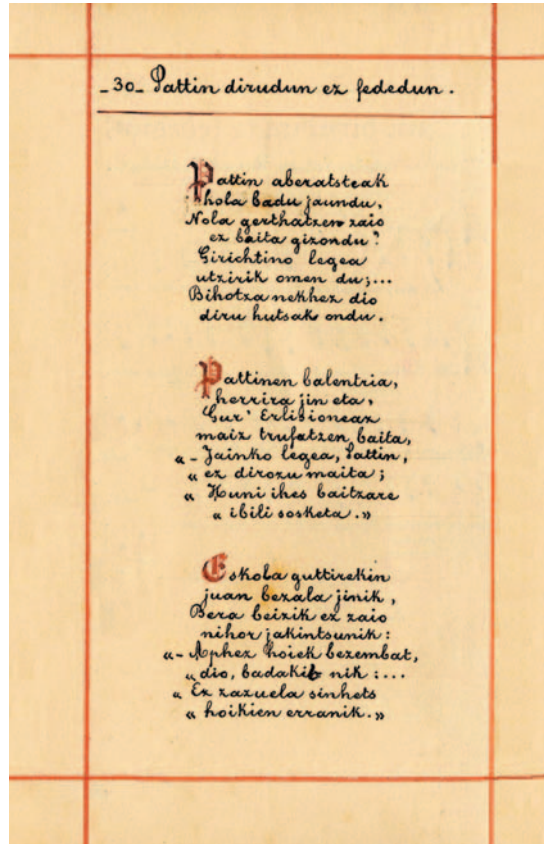 -30- Pattin dirudun ez fededun.
Pattin aberatsteak
hola badu jaundu,
Nola gerthatzen zaio
ez baita gizondu?
Girichtino legea
utzirik omen du;...
Bihotza nekhez dio
diru hutsak ondu.
Pattinen balentria,
herrira jin eta,
Gur' Erlisioneaz
maiz trufatzen baita,
«-Jainko legea, Pattin,
« ez dirozu maita;
« Huni ihes baitzare
« ibili sosketa.»
Eskola guttirekin
juan bezala jinik,
Bera beizik ez zaio
nihor jakintsunik:
«-Aphez hoiek bezembat,
« dio, badakit nik:...
« Ez zazuela sinhets
« hoikien erranik.»